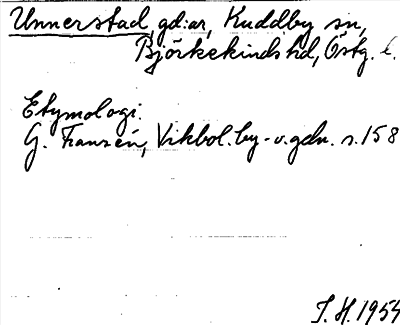 Unnerstad, gd:ar, Kuddby sn,
Björkekinds hd, Östg. l.
Etymologi.
G. Franzén, Vikbol. by- o. gdn. s. 158
I. H. 1954